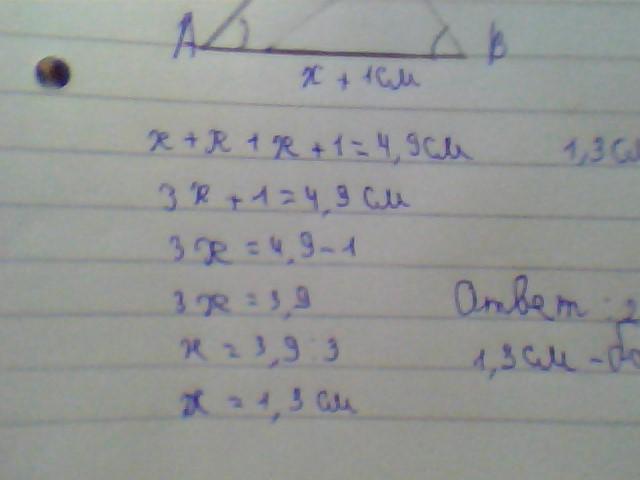 A B
x + 1см
x + x + x + 1 = 4,9см 1,3 см
3x + 1 = 4,9 см
3x = 4,9 - 1
3x = 3,9 Ответ : 2
x = 3,9 : 3 1,3 см -
x = 1,3 см